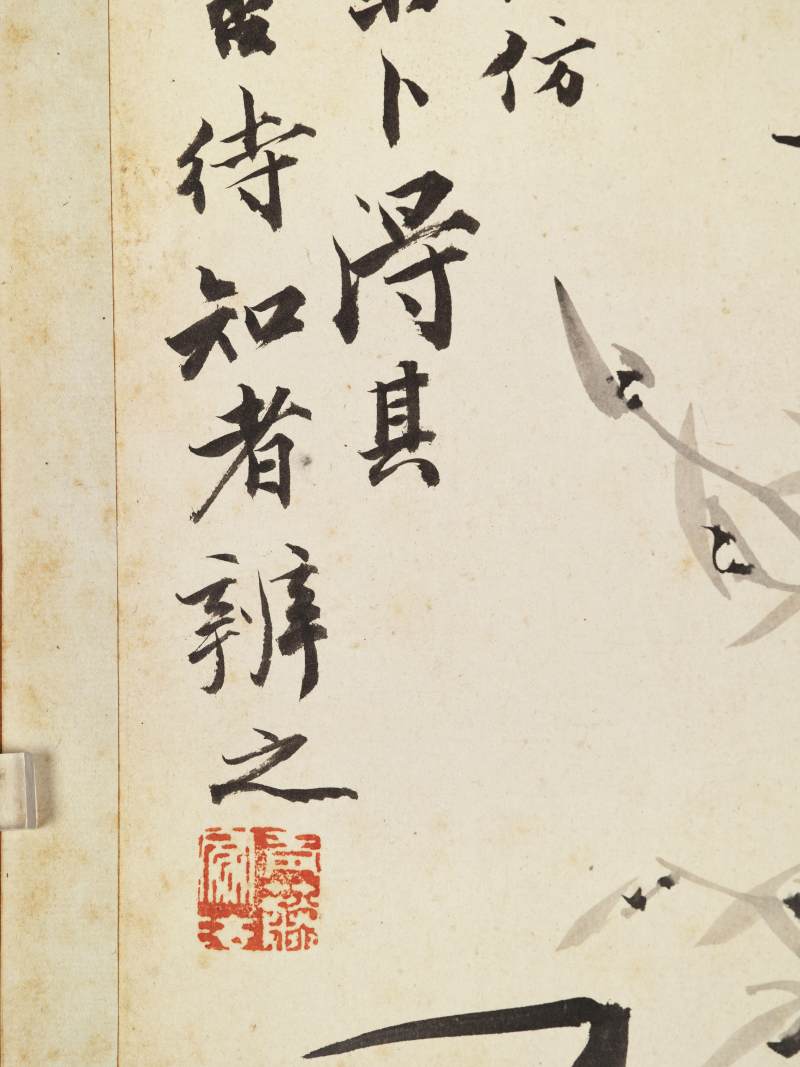 仿
卜得其
待知者辨之